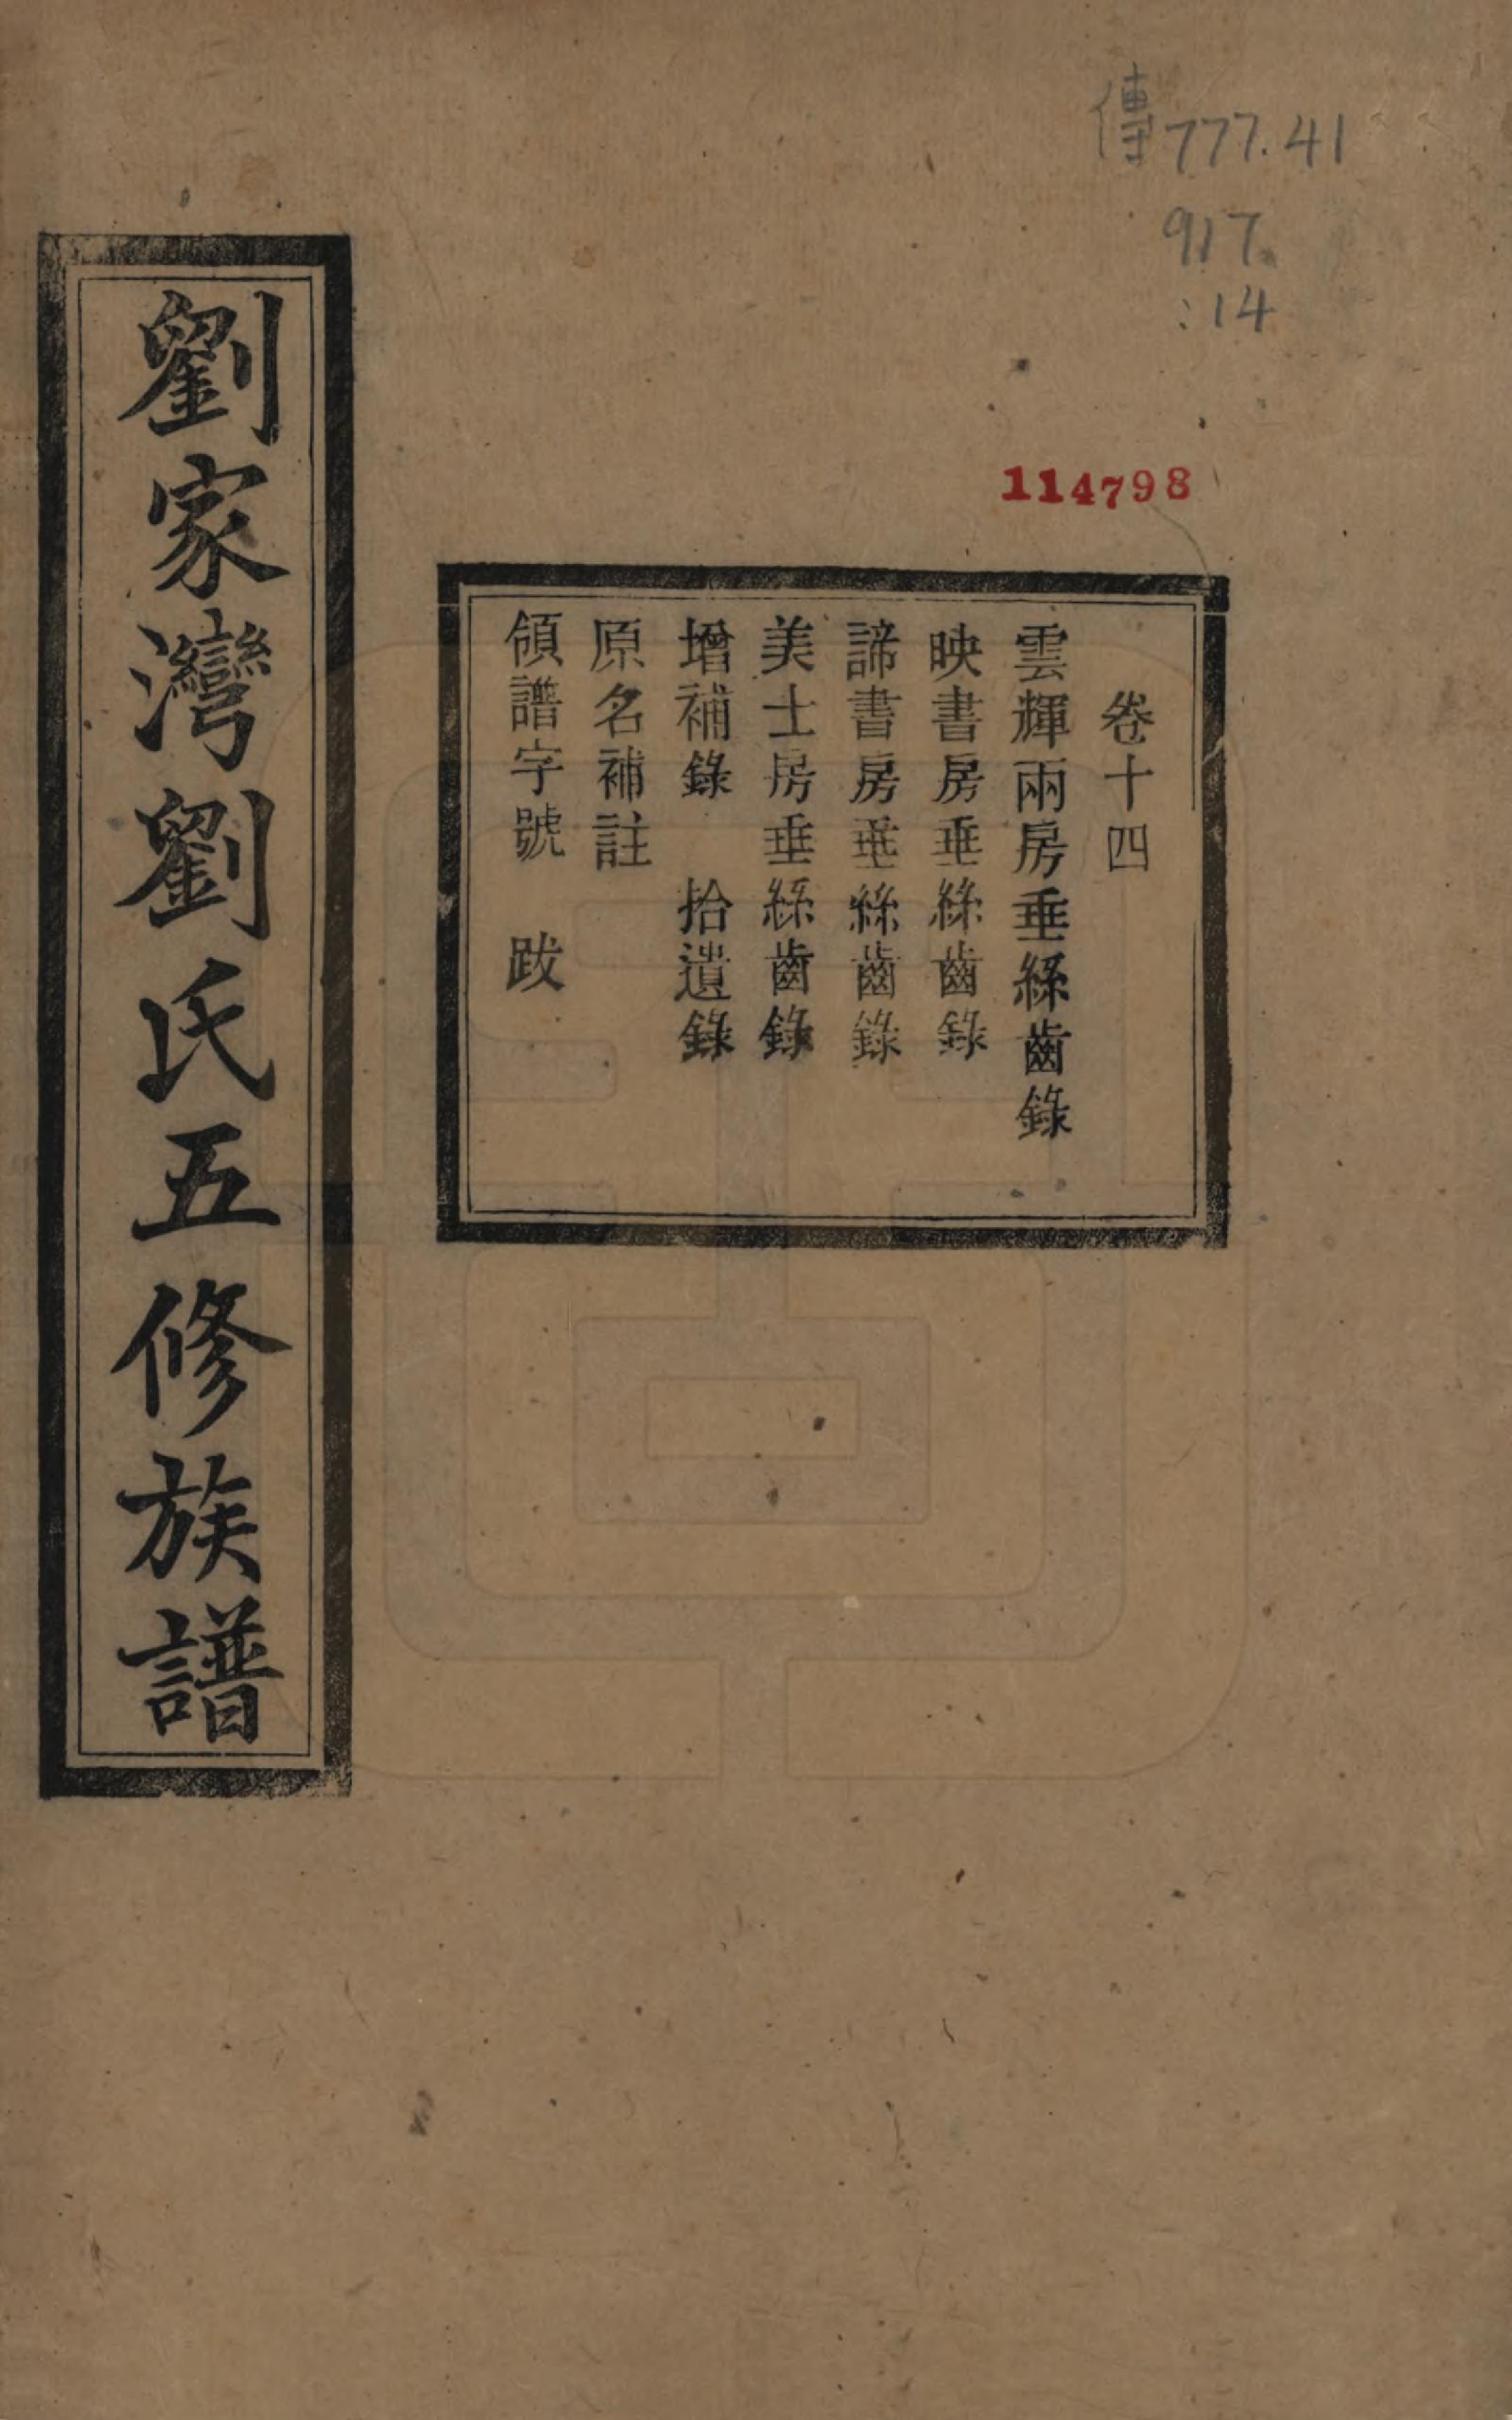 傳777.41
917
:14
114798
卷十四
雲輝兩房垂絲齒錄
映書房垂絲齒錄
諦書房垂絲齒錄
美士房垂絲齒錄
增補錄　拾遺錄
原名補註
領譜字號　跋
劉家灣劉氏五修族譜